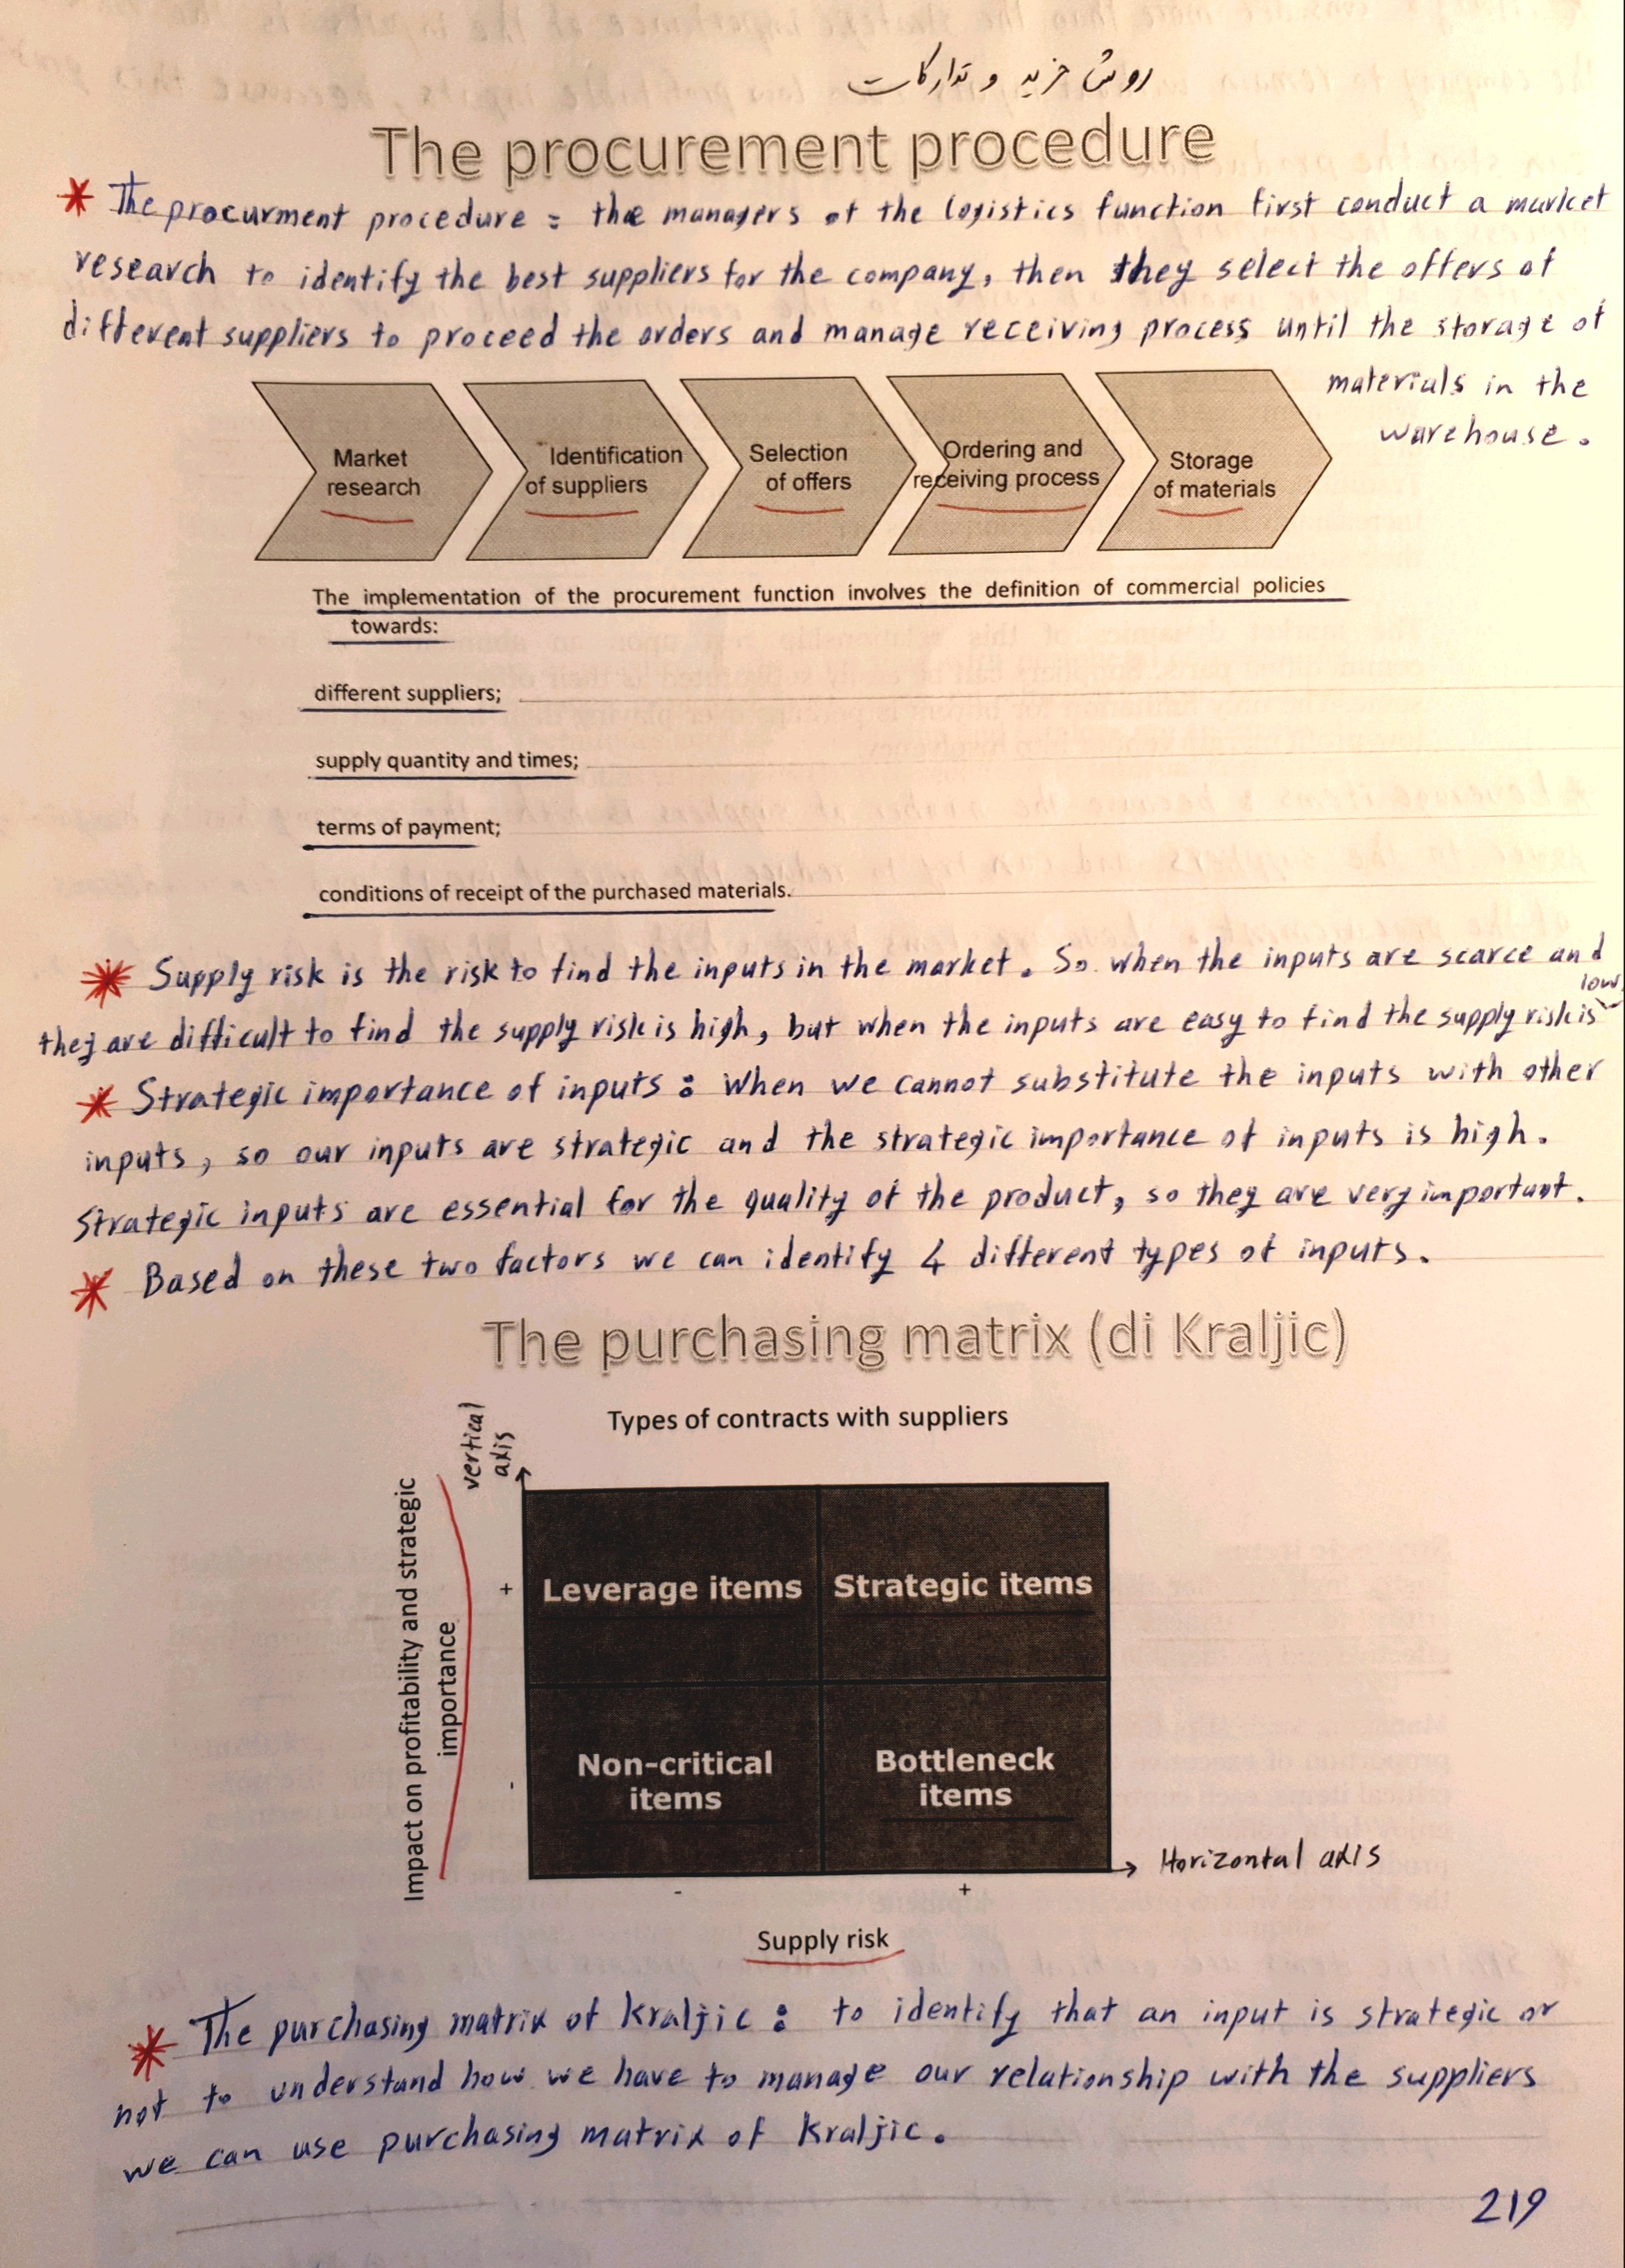 روش خرید و تدارکات
The procurement procedure
* The procurment procedure = the managers of the logistics function first conduct a market
research to identify the best suppliers for the company, then they select the offers of
different suppliers to proceed the orders and manage receiving process until the storage of
materials in the
warehouse.
Market
research
Identification
of suppliers
Selection
of offers
Ordering and
receiving process
Storage
of materials
The implementation of the procurement function involves the definition of commercial policies
towards:
different suppliers;
supply quantity and times;
terms of payment;
conditions of receipt of the purchased materials.
* Supply risk is the risk to find the inputs in the market. So when the inputs are scarce and
they are difficult to find the supply risk is high, but when the inputs are easy to find the supply risk is low
* Strategic importance of inputs: When we cannot substitute the inputs with other
inputs, so our inputs are strategic and the strategic importance of inputs is high.
Strategic inputs are essential for the quality of the product, so they are very important.
* Based on these two factors we can identify 4 different types of inputs.
The purchasing matrix (di Kraljic)
Types of contracts with suppliers
vertical
axis
Impact on profitability and strategic
importance
+
Leverage items
Strategic items
-
Non-critical
items
Bottleneck
items
Horizontal axis
-
+
Supply risk
* The purchasing matrix of Kraljic: to identify that an input is strategic or
not to understand how we have to manage our relationship with the suppliers
we can use purchasing matrix of Kraljic.
219